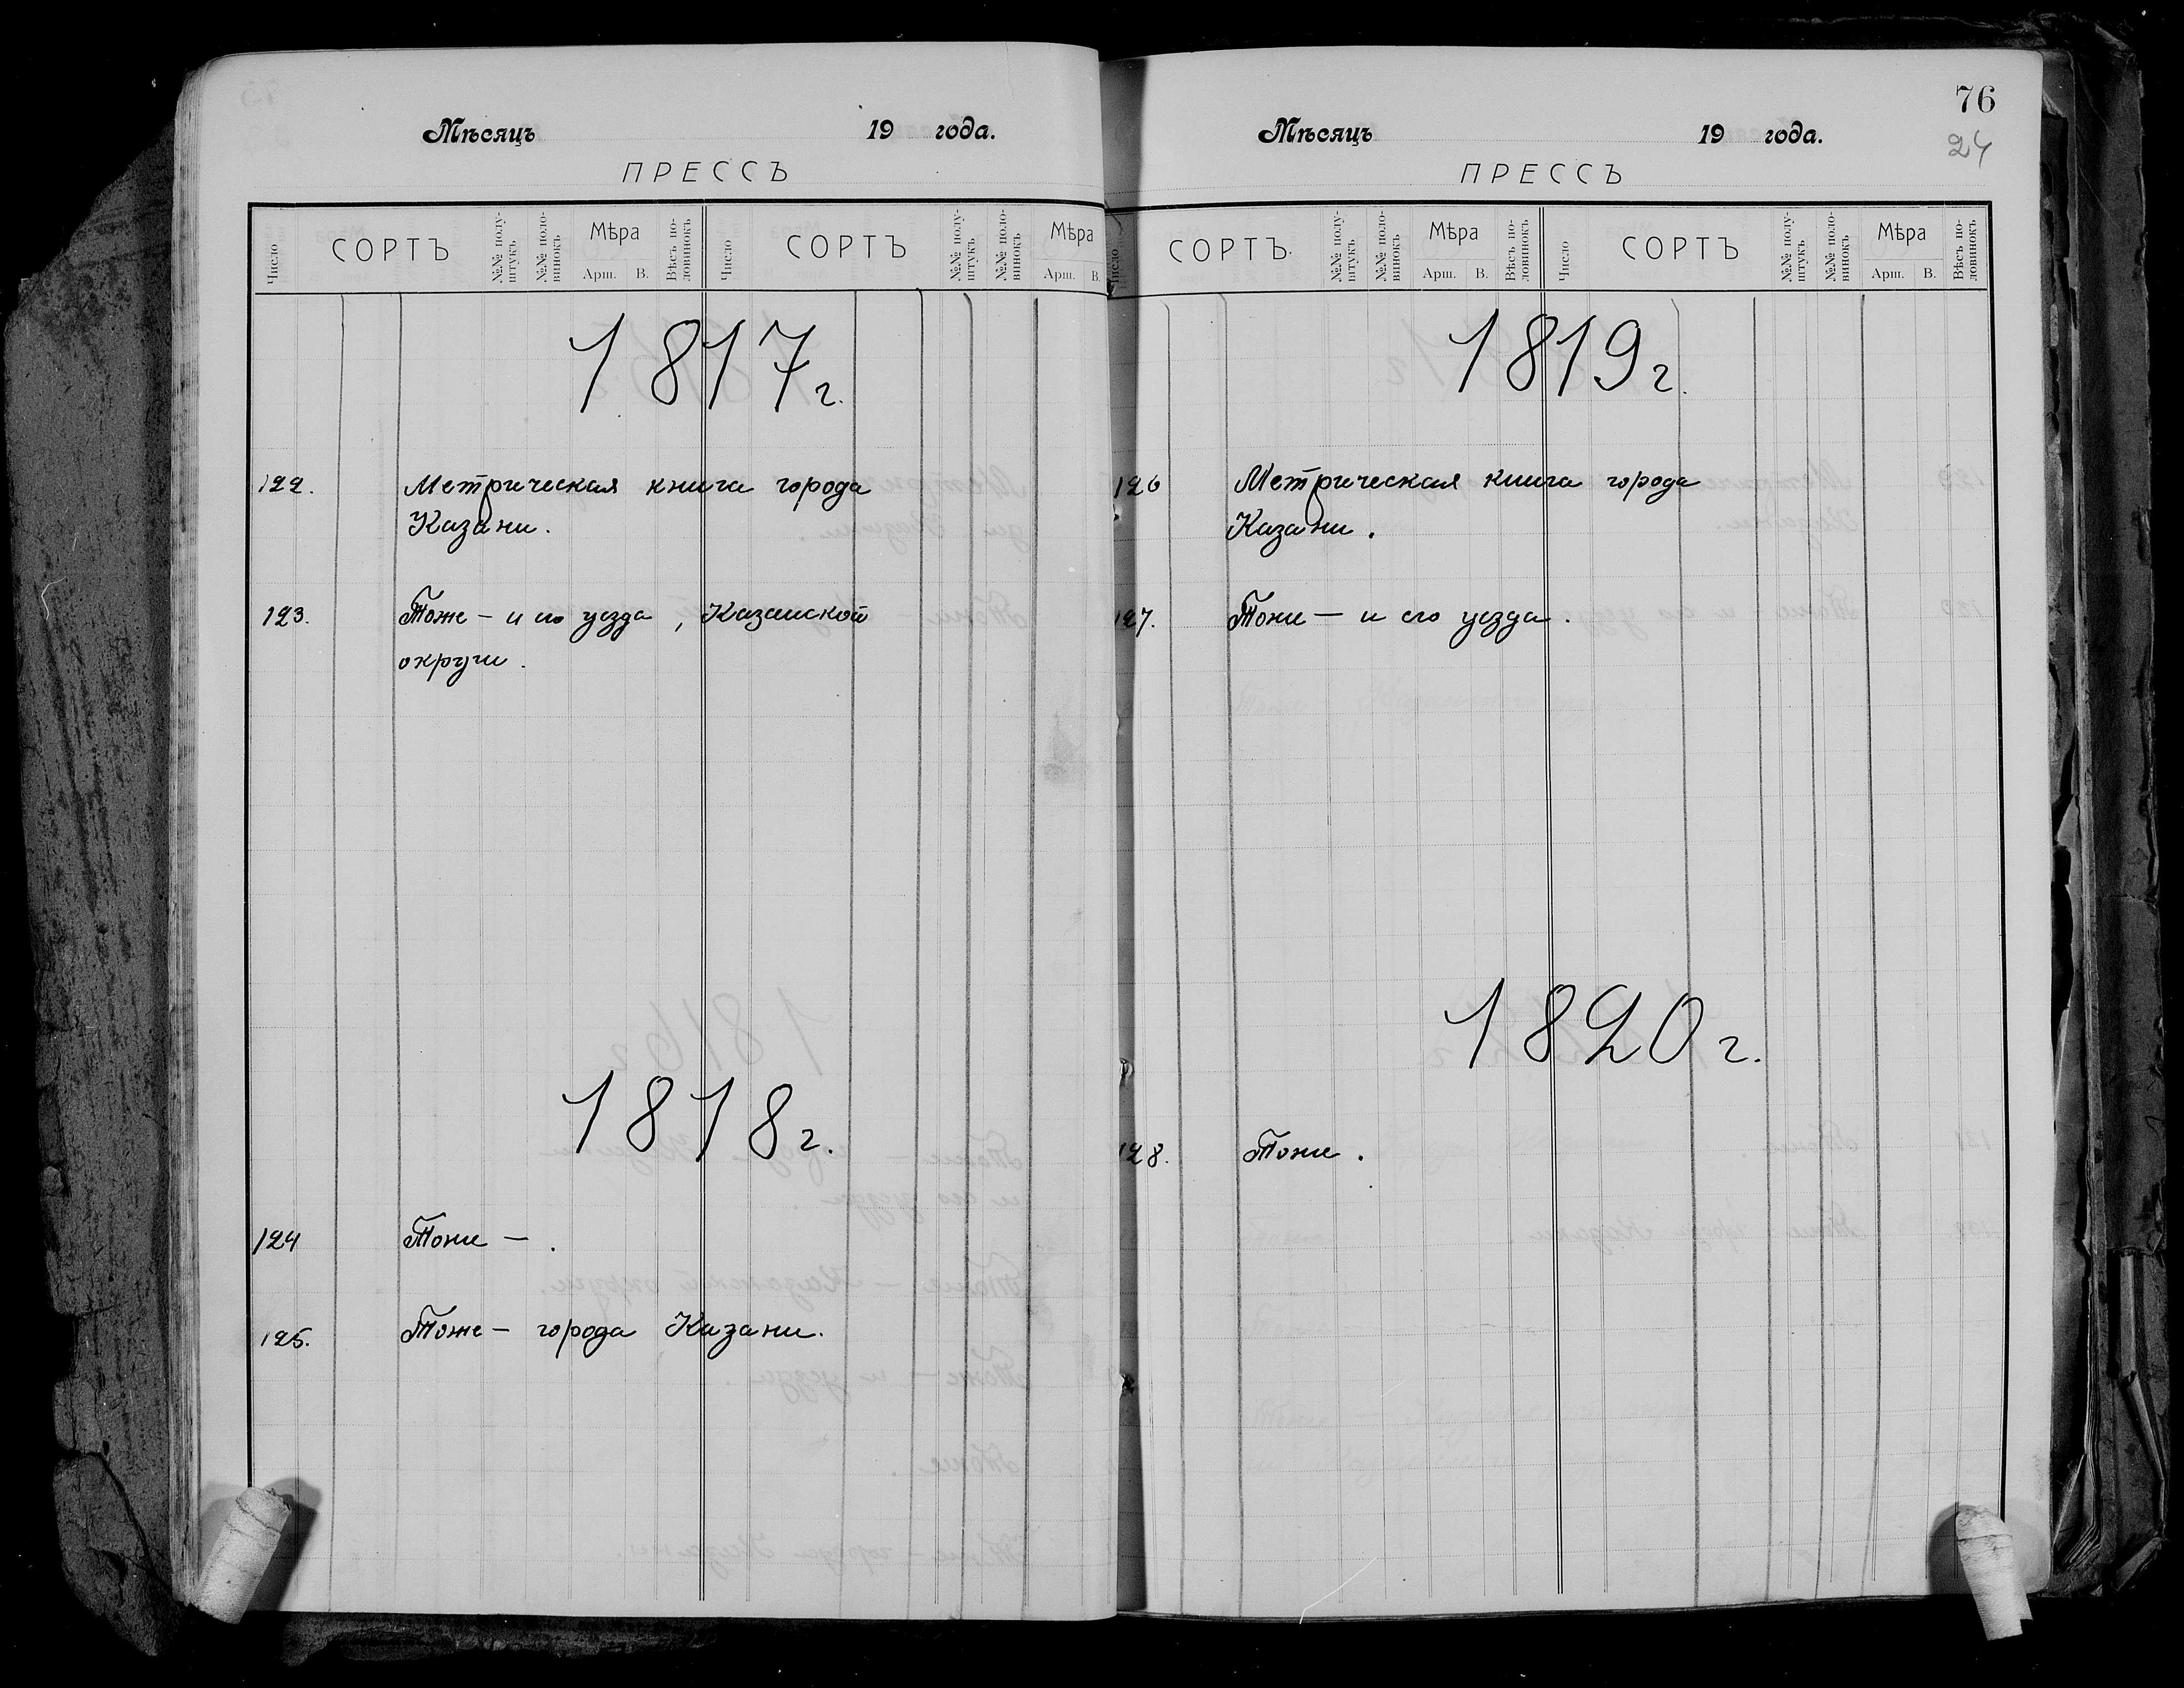 Мѣсяцъ 19 года.
ПРЕССЪ
Число СОРТЪ №№ полу-штукъ №№ поло-винокъ Мѣра Арш. В. Вѣсъ по-ловинокъ Число СОРТЪ №№ полу-штукъ №№ поло-винокъ Мѣра Арш. В.
1817 г.
122. Метрическая книга города
Казани.
123. Тоже – и его уезда, Казанской
округи.
1818 г.
124 Тоже – .
125. Тоже – города Казани.
76
24
Мѣсяцъ 19 года.
ПРЕССЪ
Число СОРТЪ. №№ полу-штукъ №№ поло-винокъ Мѣра Арш. В. Вѣсъ по-ловинокъ Число СОРТЪ №№ полу-штукъ №№ поло-винокъ Мѣра Арш. В. Вѣсъ по-ловинокъ
1819 г.
126 Метрическая книга города
Казани.
127. Тоже – и его уезда.
1820 г.
128. Тоже.